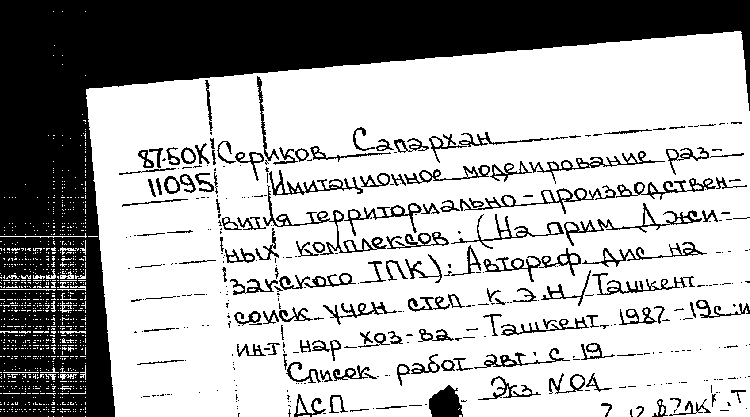 87-50К Сериков, Сапархан
11095 Имитационное моделирование раз-
вития территориально-производствен-
ных комплексов: (На прим. Джи-
закского ТПК): Автореф. дис. на
соиск учен степ к.э.н/Ташкент
ин-т нар хоз-ва.-Ташкент, 1987-19с.:и
Список работ авт: с 19
ДСП Экз. N01